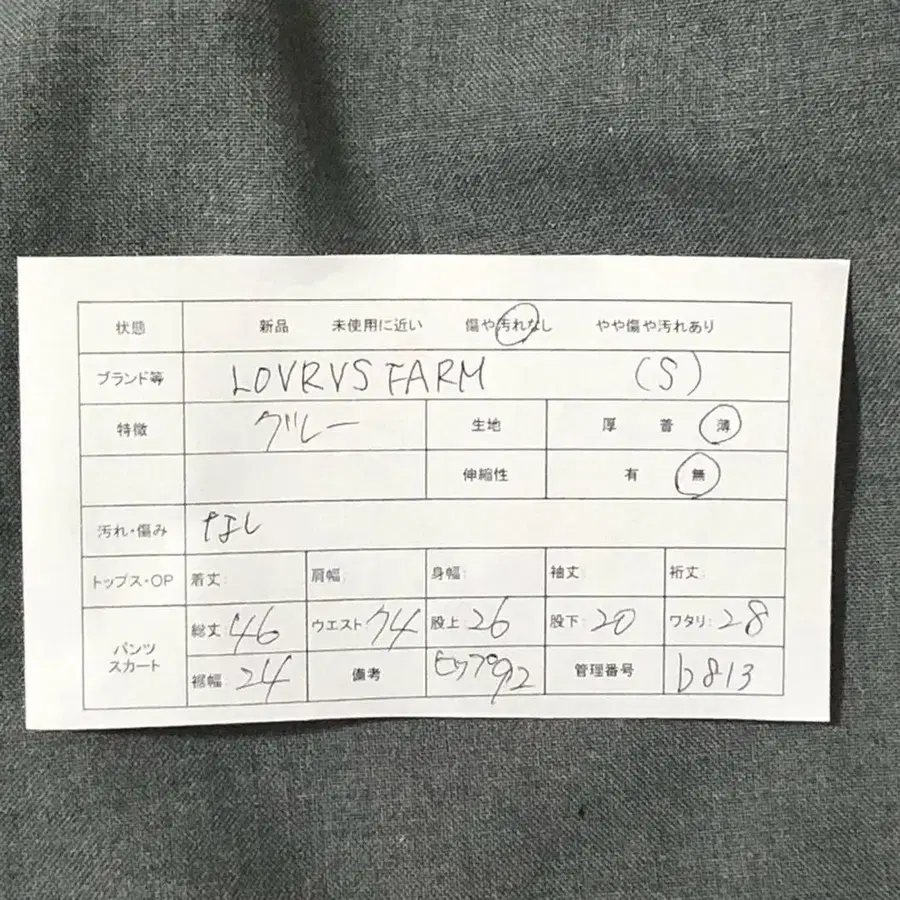 状態 新品 未使用に近い 傷や汚れなし やや傷や汚れあり
ブランド等 LOVRVS FARM (S)
特徴 グレー 生地 厚 普 薄
伸縮性 有 無
汚れ・傷み なし
トップス・OP 着丈: 肩幅: 身幅: 袖丈: 裄丈:
パンツ スカート 総丈: 46 ウエスト: 74 股上: 26 股下: 20 ワタリ: 28
裾幅: 24 備考 ヒップ92 管理番号 b813